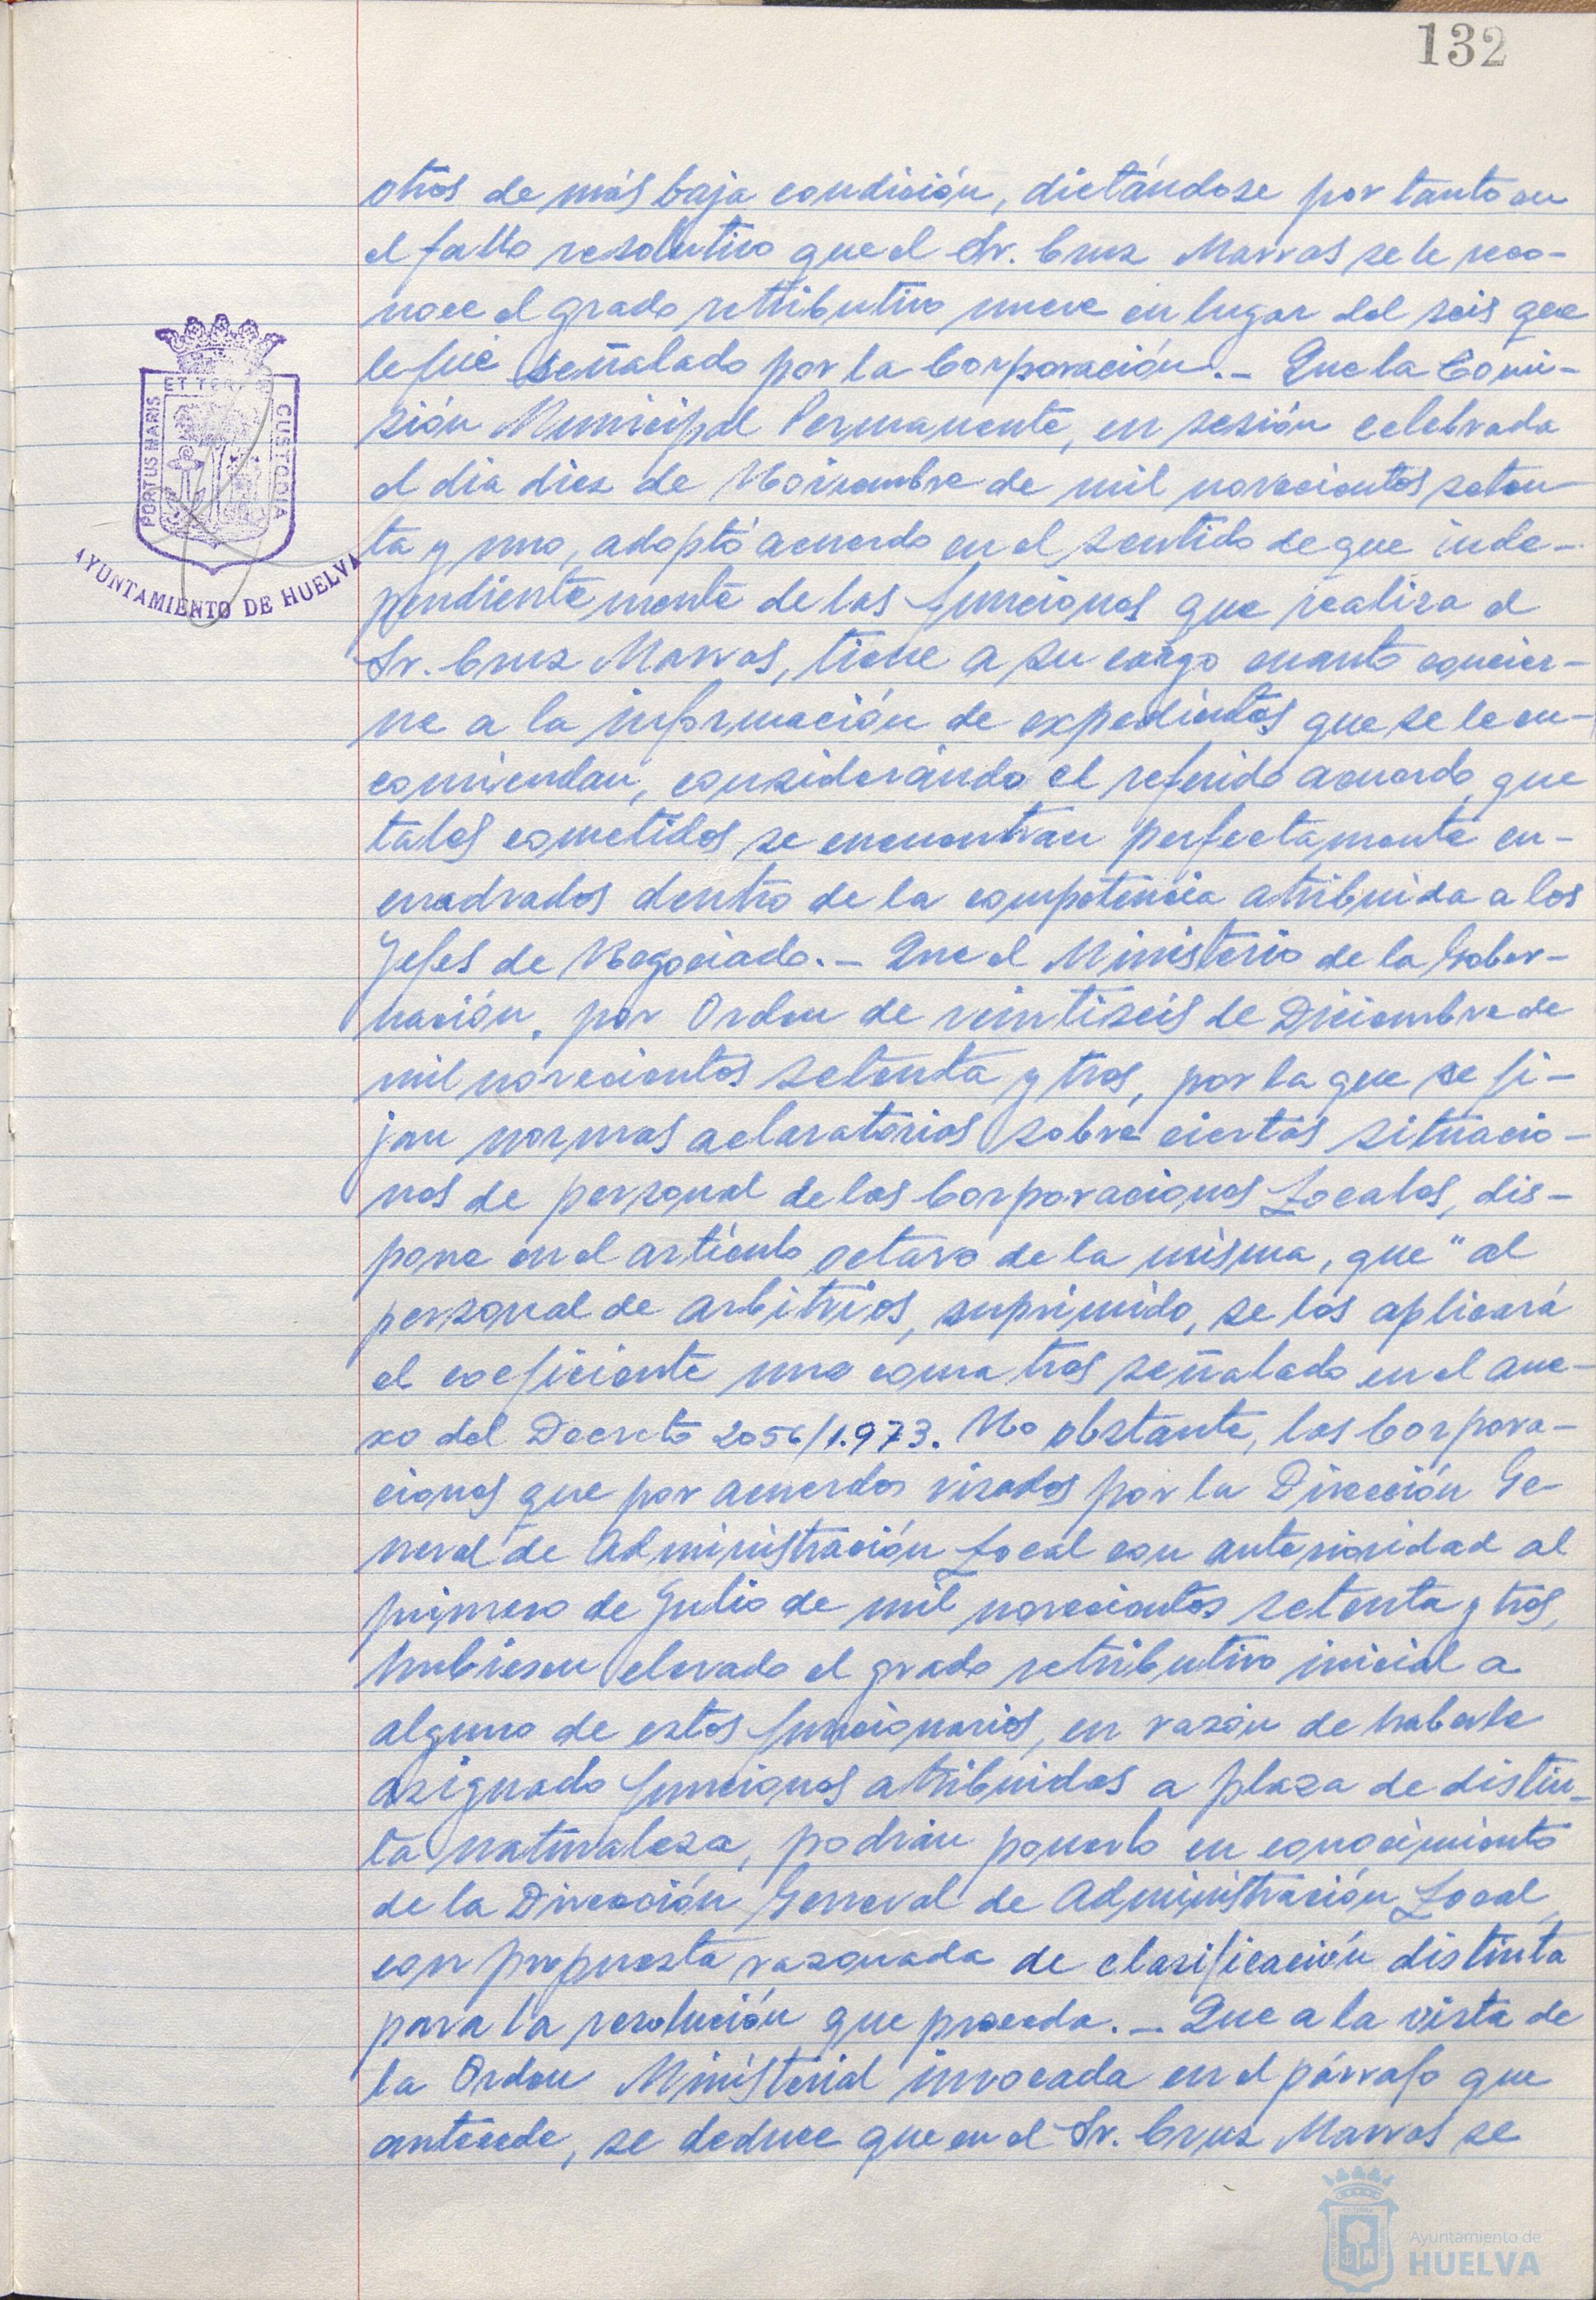 132
otros de más baja condición, dictándose por tanto en
el fallo resolutivo que el Sr. Cruz Marvas se le reco-
noce el grado retributivo nueve en lugar del seis que
le fué señalado por la Corporación.- Que la Comi-
sión Municipal Permanente, en sesión celebrada
el día diez de Noviembre de mil novecientos seten-
ta y uno, adoptó acuerdo en el sentido de que inde-
pendientemente de las funciones que realiza el
Sr. Cruz Marvas, tiene a su cargo cuanto concier-
ne a la información de expedientes que se le en-
comiendan, considerando el referido acuerdo que
tales cometidos se encuentran perfectamente en-
cuadrados dentro de la competencia atribuida a los
Jefes de Negociado.- Que el Ministerio de la Gober-
nación, por Orden de veintiseis de Diciembre de
mil novecientos setenta y tres, por la que se fi-
jan normas aclaratorias sobre ciertas situacio-
nes de personal de las Corporaciones Locales, dis-
pone en el artículo octavo de la misma, que "al
personal de arbitrios, suprimido, se les aplicará
el coeficiente uno coma tres señalado en el ane-
xo del Decreto 2056/1.973. No obstante, las Corpora-
ciones que por acuerdos visados por la Dirección Ge-
neral de Administración Local con anterioridad al
primero de Julio de mil novecientos setenta y tres,
hubiesen elevado el grado retributivo inicial a
alguno de estos funcionarios, en razón de haberle
asignado funciones atribuidas a plaza de distin-
ta naturaleza, podrán ponerlo en conocimiento
de la Dirección General de Administración Local,
con propuesta razonada de clasificación distinta
para la resolución que proceda.- Que a la vista de
la Orden Ministerial invocada en el párrafo que
antecede, se deduce que en el Sr. Cruz Marvas se
PORTUS MARIS ET TERRAE CUSTODIA
AYUNTAMIENTO DE HUELVA
Ayuntamiento de
HUELVA